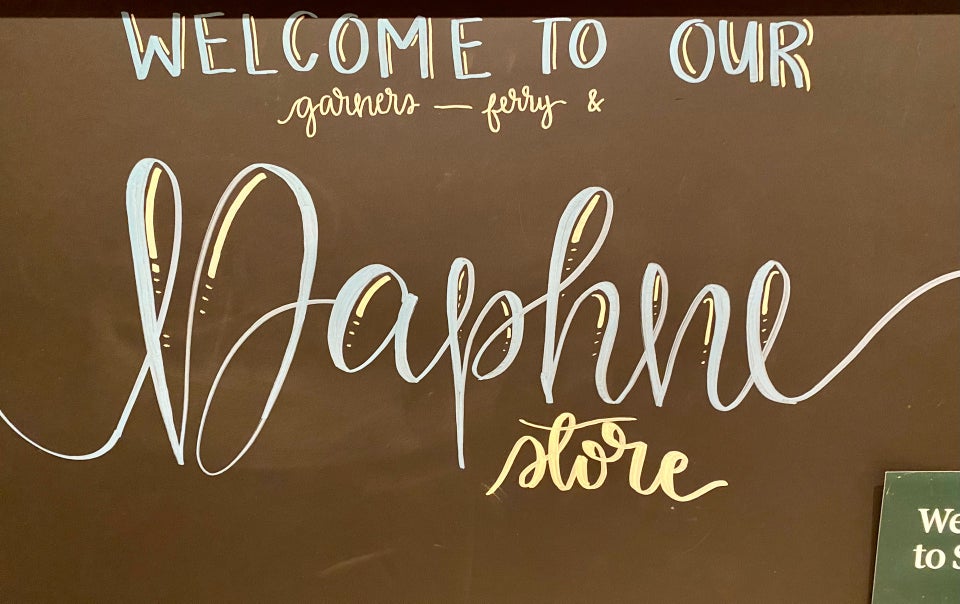 WELCOME TO OUR
garners — ferry &
Daphne
store
We
to S